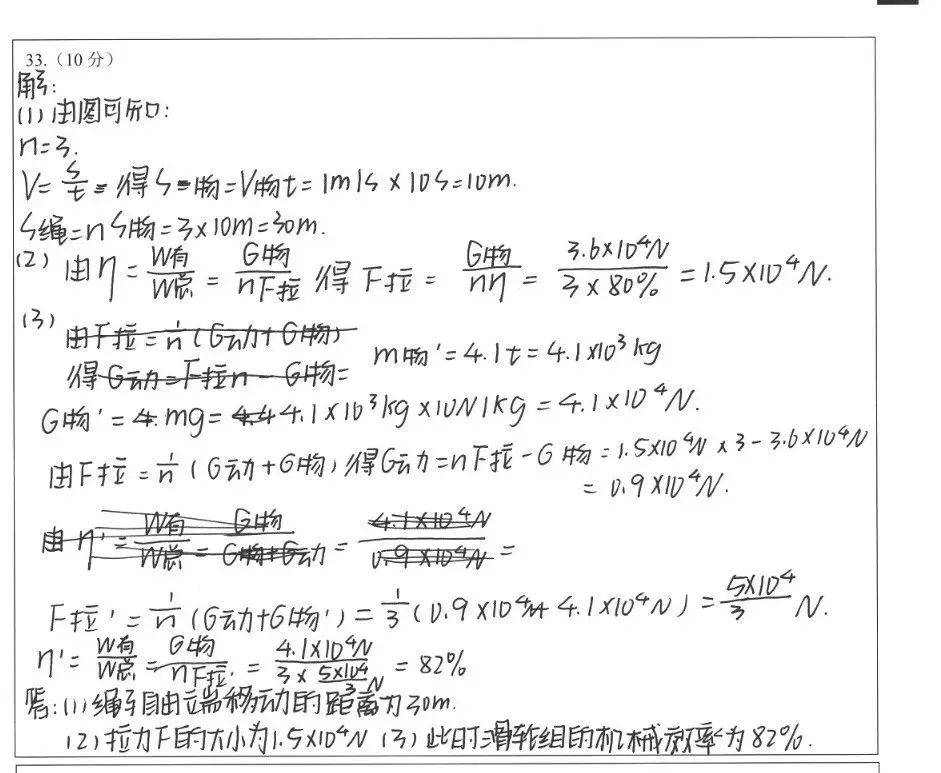 33.（10 分）
解:
(1) 由图可知:
n=3.
V=s/t 得 s物=V物t=1m/s×10s=10m.
s绳=ns物=3×10m=30m.
(2) 由η=W有/W总=G物/nF拉 得 F拉=G物/nη=3.6×10⁴N/3×80%=1.5×10⁴N.
(3) 由F拉=1/n(G动+G物)
m物'=4.1t=4.1×10³kg
得G动=F拉n-G物=
G物'=mg=4.1×10³kg×10N/kg=4.1×10⁴N.
由F拉=1/n(G动+G物)得G动=nF拉-G物=1.5×10⁴N×3-3.6×10⁴N
=0.9×10⁴N.
由η'=W有/W总=G物/G物+G动=4.1×10⁴N/0.9×10⁴N=
F拉'=1/n(G动+G物')=1/3(0.9×10⁴N+4.1×10⁴N)=5×10⁴/3 N.
η'=W有/W总=G物/nF拉'=4.1×10⁴N/3×5×10⁴/3N=82%
答:(1)绳子自由端移动的距离为30m.
(2)拉力F的大小为1.5×10⁴N (3)此时滑轮组的机械效率为82%.